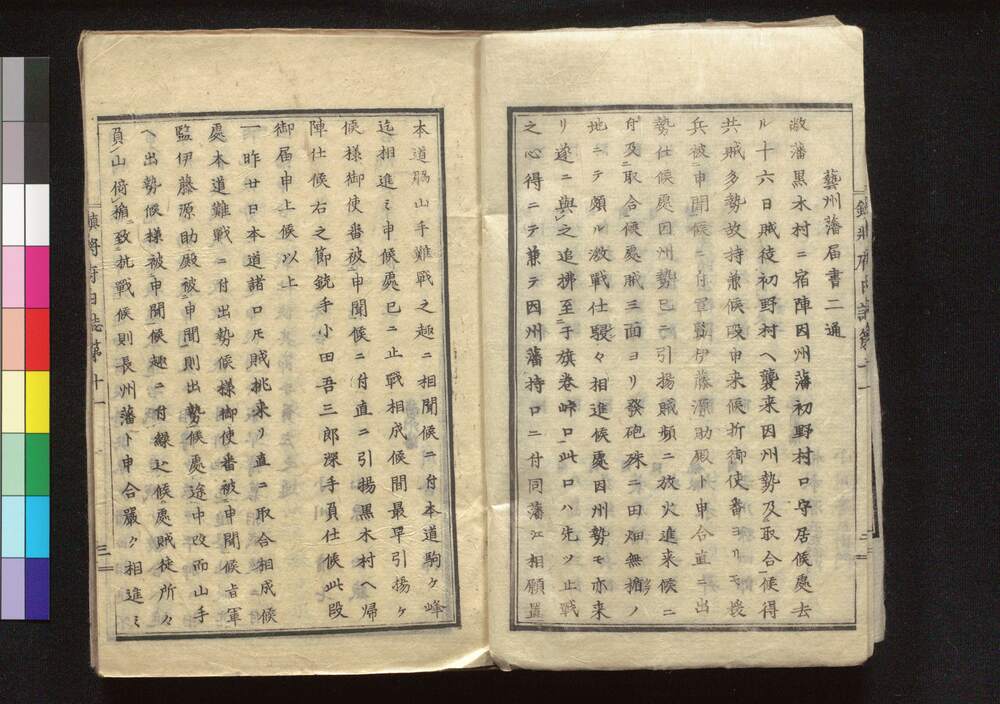 藝州藩届書二通
敝藩黒木村ニ宿陣因州藩初野村口守居候處去
ル十六日賊徒初野村ヘ襲来因州勢及取合候得
共賊多勢故持兼候段申来候折御使番ヨリモ援
兵被申聞候ニ付軍監伊藤源助殿ト申合直ニ出
勢仕候處因州勢已ニ引揚賊頻ニ放火進来候ニ
付及取合候處賊三面ヨリ發砲殊ニ田畑無楯ノ
地ニテ頗ル激戰仕駸々相進候處因州勢モ亦来
リ遂ニ與之追拂至于旗巻峠口此口ハ先ツ止戰
之心得ニテ兼テ因州藩持口ニ付同藩江相願置
本道駒山手難戰之趣ニ相聞候ニ付本道駒ケ峰
迄相進ミ申候處已ニ止戰相成候間最早引揚ケ
候様御使番被申聞候ニ付直ニ引揚黒木村ヘ帰
陣仕候右之節銃手小田吾三郎深手負仕候此段
御届申上候以上
一昨廿日本道諸口ヘ賊挑来リ直ニ取合相成候
處本道難戰ニ付出勢候様御使番被申聞候旨軍
監伊藤源助殿被申聞則出勢候處途中改而山手
ヘ出勢候様被申聞候趣ニ付繰上候處賊徒所々
負山倚楯致抗戰候則長州藩ト申合嚴ク相進ミ
鎮将府日誌第十一
三